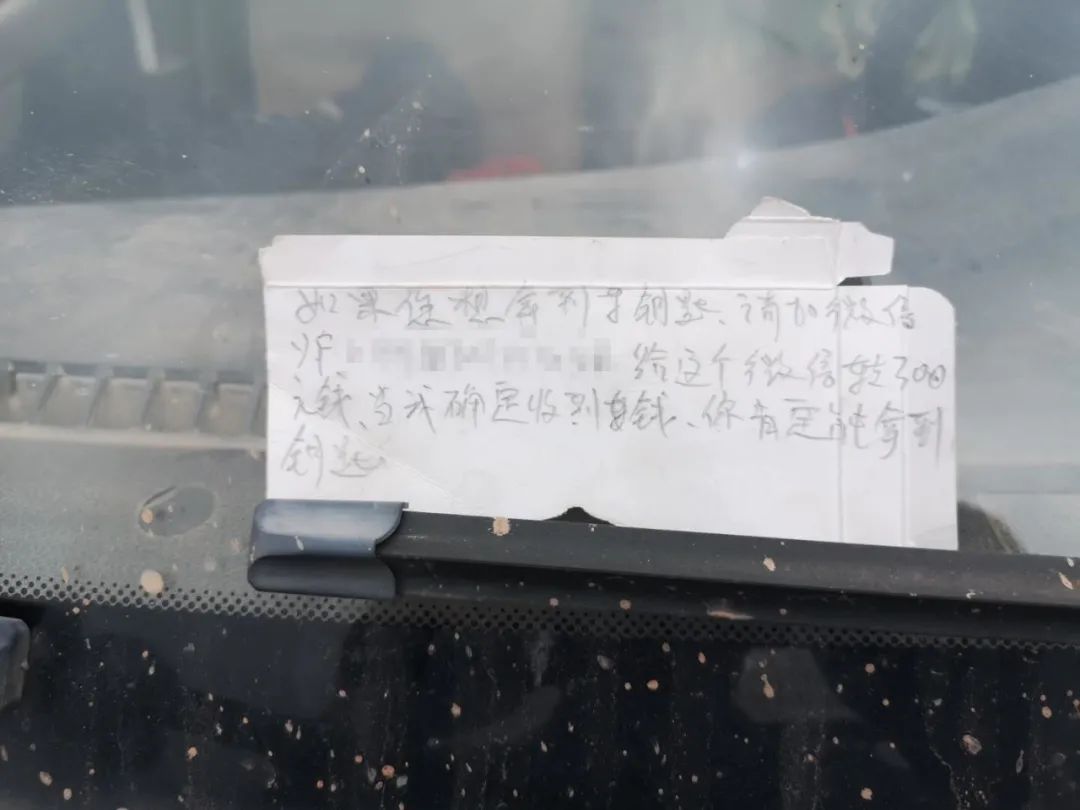 如果您想拿到车钥匙、请加微信
号 给这个微信转
元钱、当我确定收到 钱、你肯定能拿到
钥匙